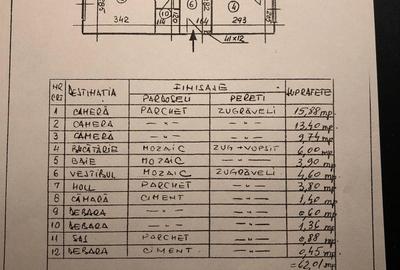 6
4
(10)
342
164
293
41×12
NR CRT DESTINATIA FINISAJE SUPRAFETE
PARDOSELI PERETI
1 CAMERĂ PARCHET ZUGRĂVELI 15,88 mp
2 CAMERA —"— —"— 13,40 mp
3 CAMERĂ —"— —"— 9,74 mp
4 BUCĂTĂRIE MOZAIC ZUG+VOPSIT 6,00 mp
5 BAIE MOZAIC —"— 3,90 mp
6 VESTIBUL MOZAIC —"— 4,60 mp
7 HOLL PARCHET —"— 3,80 mp
8 CĂMARĂ CIMENT —"— 1,40 mp
9 DEBARA —"— —"— 0,60 mp
10 DEBARA —"— —"— 1,36 mp
11 SAS PARCHET —"— 0,88 mp
12 DEBARA CIMENT —"— 0,45 mp
=62,01 mp